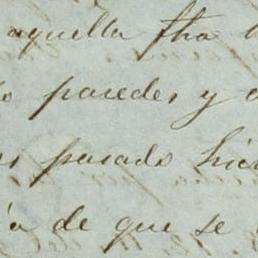 aquella fha
paredes, y
pasado hici
de que se